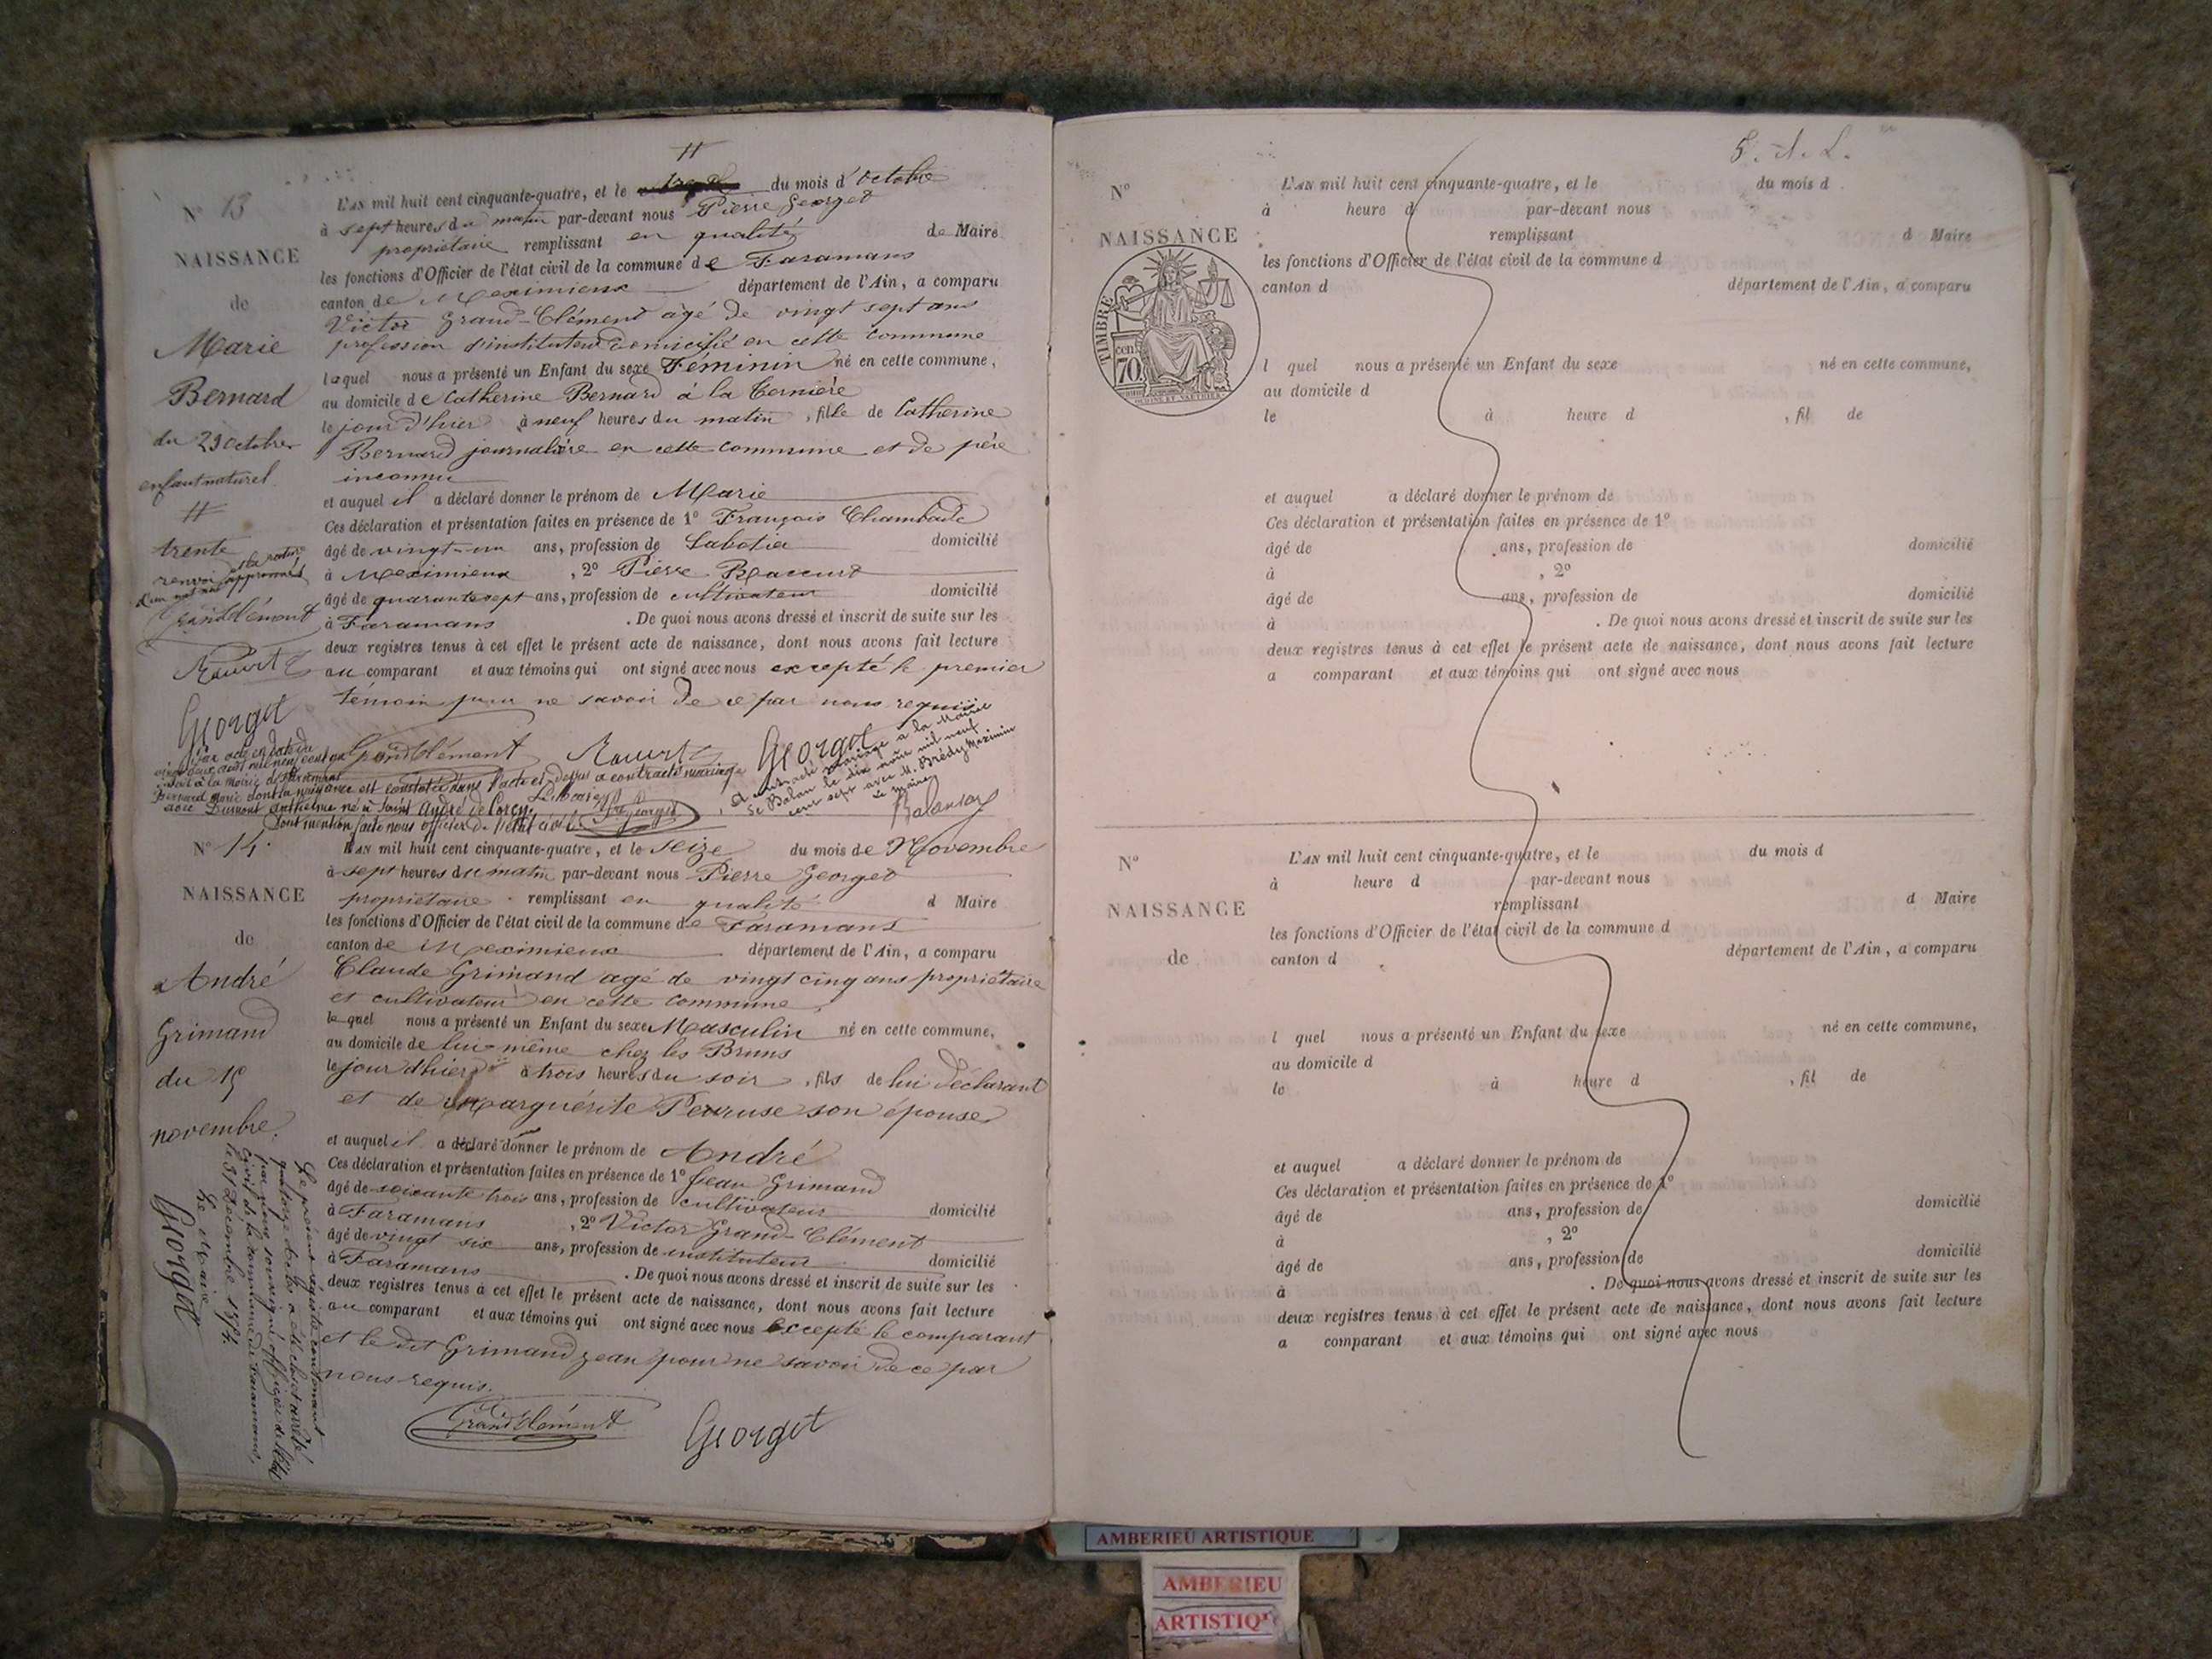 #
N° 13
NAISSANCE
de
Marie
Bernard
du 29 octobre
enfant naturel
#
trente
renvoi approuvés
Grandclément
Georget
L'AN mil huit cent cinquante-quatre, et le du mois d'octobre
à sept heures du matin par-devant nous Pierre Georget
propriétaire remplissant en qualité de Maire
les fonctions d'Officier de l'état civil de la commune de Faramans
canton de Meximieux département de l'Ain, a comparu
Victor Grand-Clément agé de vingt sept ans
profession d'instituteur domicilié en cette commune
lequel nous a présenté un Enfant du sexe Féminin né en cette commune,
au domicile de Catherine Bernard à la
le jour d'hier à neuf heures du matin, fille de Catherine
Bernard journalière en cette commune et de père
inconnu
et auquel il a déclaré donner le prénom de Marie
Ces déclaration et présentation faites en présence de 1° François Chambade
âgé de vingt-un ans, profession de Sabotier domicilié
à Meximieux, 2° Pierre
âgé de quarante sept ans, profession de cultivateur domicilié
à Faramans. De quoi nous avons dressé et inscrit de suite sur les
deux registres tenus à cet effet le présent acte de naissance, dont nous avons fait lecture
au comparant et aux témoins qui ont signé avec nous excepté le premier
témoin pour ne savoir de ce par nous requis
Grandclément Georget
Par acte en date du
vingt deux août mil neuf cent un
fait à la mairie de
Bernard Marie dont la naissance est constatée dans l'acte ci-dessus a contracté mariage
avec Dumont Anthelme né à Saint André de Corcy.
Dont mention faite nous officier de l'état civil
Le Maire
Georget
A contracté mariage à la Mairie
de Balan le dix août mil neuf
cent sept avec M. Brédy Maximin
Le Maire
N° 14.
NAISSANCE
de
André
Grimand
du 15
novembre.
L'AN mil huit cent cinquante-quatre, et le seize du mois de Novembre
à sept heures du matin par-devant nous Pierre Georget
propriétaire remplissant en qualité d Maire
les fonctions d'Officier de l'état civil de la commune de Faramans
canton de Meximieux département de l'Ain, a comparu
Claude Grimand agé de vingt cinq ans propriétaire
et cultivateur en cette commune,
lequel nous a présenté un Enfant du sexe Masculin né en cette commune,
au domicile de lui-même chez les Bruns
le jour d'hier à trois heures du soir, fils de lui déclarant
et de Marguérite Peuruse son épouse
et auquel il a déclaré donner le prénom de André
Ces déclaration et présentation faites en présence de 1° Jean Grimand
âgé de soixante trois ans, profession de cultivateur domicilié
à Faramans, 2° Victor Grand-Clément
âgé de vingt six ans, profession de instituteur domicilié
à Faramans. De quoi nous avons dressé et inscrit de suite sur les
deux registres tenus à cet effet le présent acte de naissance, dont nous avons fait lecture
au comparant et aux témoins qui ont signé avec nous excepté le comparant
et le dit Grimand Jean pour ne savoir de ce par
nous requis.
Grandclément Georget
Le présent registre contenant
quatorze actes a été clos et arrêté
par nous soussigné officier de l'état
civil de la commune de Faramans,
le 31 Décembre 1854.
Le Maire
Georget
N°
NAISSANCE
TIMBRE
70 cent
L'AN mil huit cent cinquante-quatre, et le du mois d
à heure d par-devant nous
remplissant d Maire
les fonctions d'Officier de l'état civil de la commune d
canton d département de l'Ain, a comparu
l quel nous a présenté un Enfant du sexe né en cette commune,
au domicile d
le à heure d , fil de
et auquel a déclaré donner le prénom de
Ces déclaration et présentation faites en présence de 1°
âgé de ans, profession de domicilié
à , 2°
âgé de ans, profession de domicilié
à . De quoi nous avons dressé et inscrit de suite sur les
deux registres tenus à cet effet le présent acte de naissance, dont nous avons fait lecture
a comparant et aux témoins qui ont signé avec nous
N°
NAISSANCE
de
L'AN mil huit cent cinquante-quatre, et le du mois d
à heure d par-devant nous
remplissant d Maire
les fonctions d'Officier de l'état civil de la commune d
canton d département de l'Ain, a comparu
l quel nous a présenté un Enfant du sexe né en cette commune,
au domicile d
le à heure d , fil de
et auquel a déclaré donner le prénom de
Ces déclaration et présentation faites en présence de 1°
âgé de ans, profession de domicilié
à , 2°
âgé de ans, profession de domicilié
à . De quoi nous avons dressé et inscrit de suite sur les
deux registres tenus à cet effet le présent acte de naissance, dont nous avons fait lecture
a comparant et aux témoins qui ont signé avec nous
AMBERIEU ARTISTIQUE
AMBERIEU
ARTISTIQ